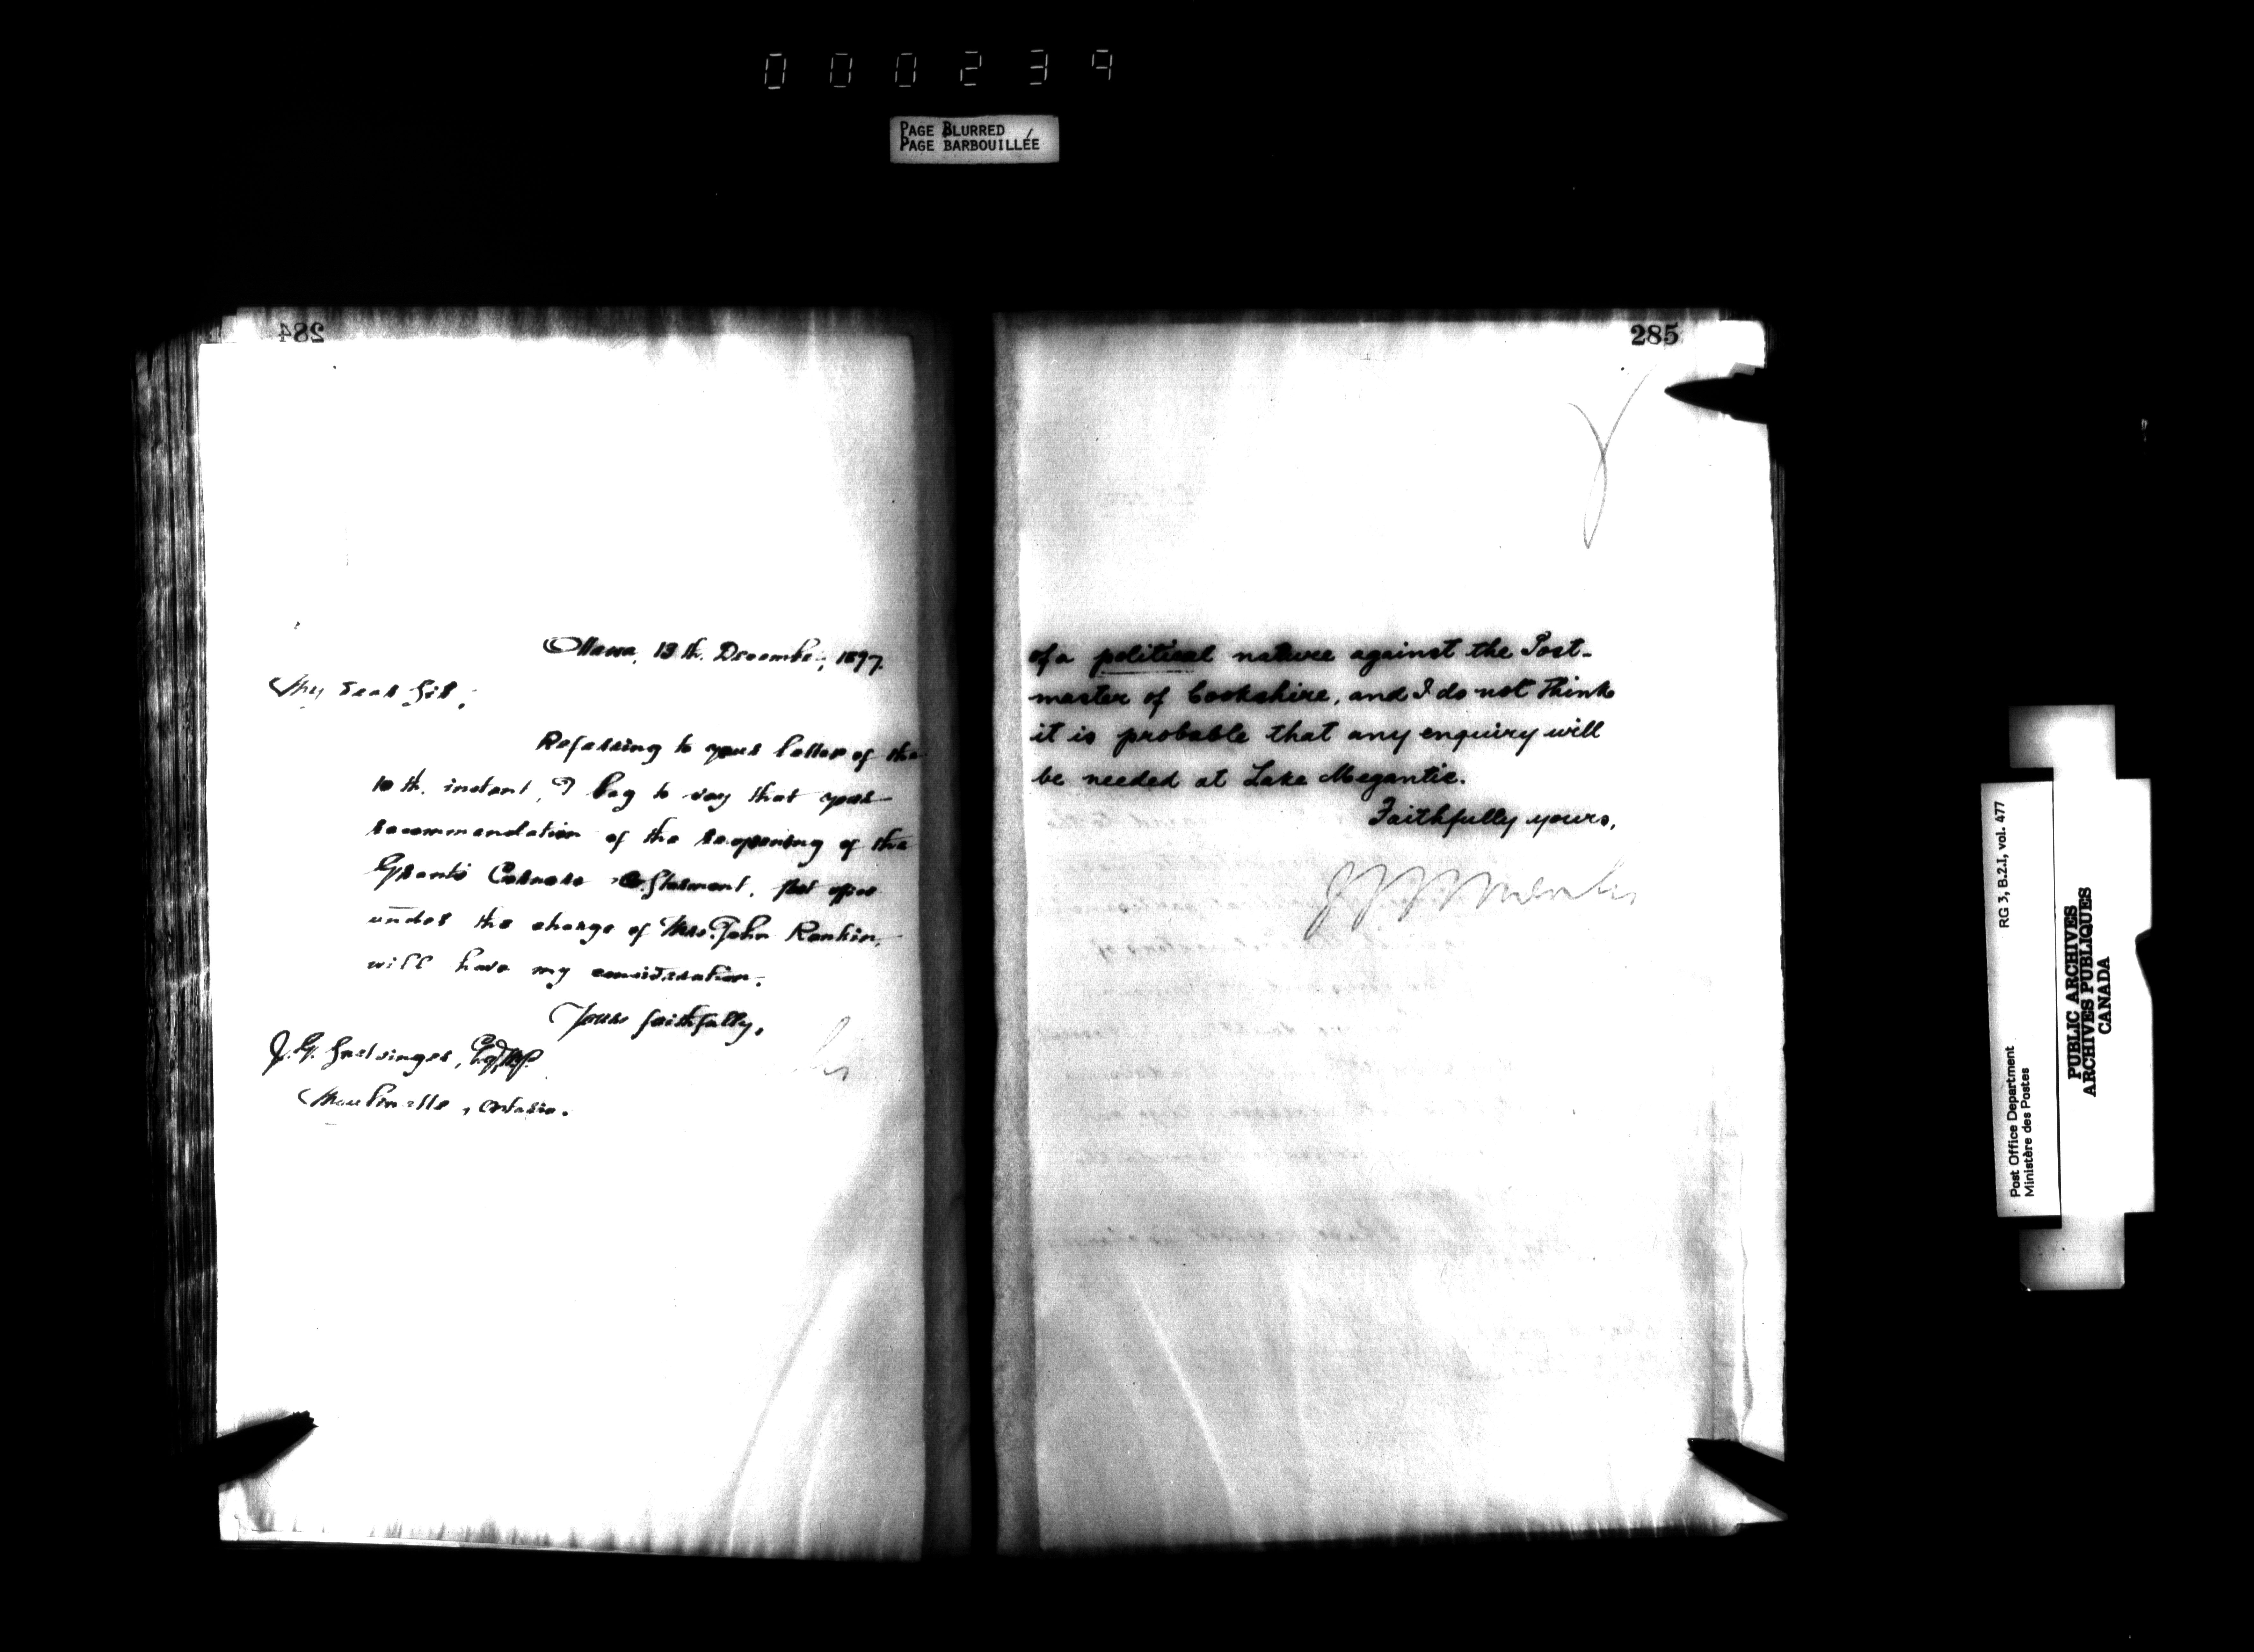 000239
PAGE BLURRED
PAGE BARBOUILLÉE
284
Ottawa, 13th. December, 1897.
My dear Sir,
Referring to your letter of the
10th. instant, I beg to say that your
recommendation of the re-opening of the
Grant's Corners post office
under the charge of Mrs. John Rankin,
will have my consideration.
Yours faithfully,
J. G. Snetsinger, Esq, M.P.
Moulinette, Ontario.
285
of a political nature against the Post-
master of Cookshire, and I do not think
it is probable that any enquiry will
be needed at Lake Megantic.
Faithfully yours,
RG 3, B.2.I, vol. 477
Post Office Department
Ministère des Postes
PUBLIC ARCHIVES
ARCHIVES PUBLIQUES
CANADA